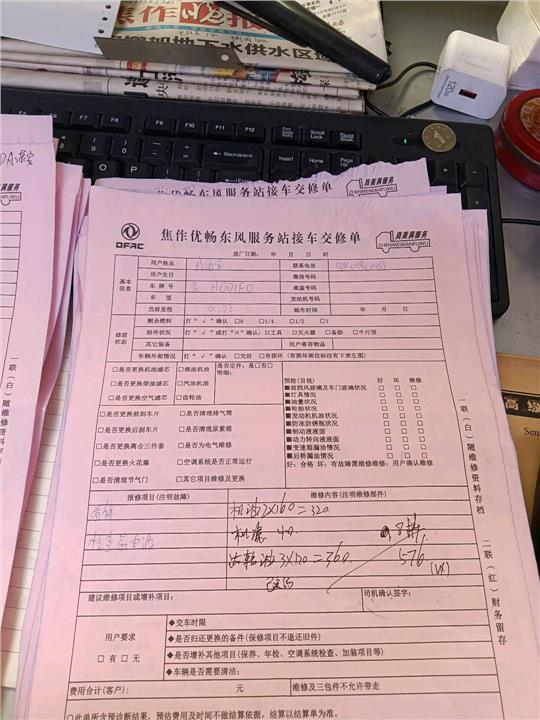 焦作
报
架地下水供水区
120W
F5 F6 F7 F8 F9 F10 F11 F12
Scroll Lock
Backspace
Insert
Home
焦作优畅东风服务站接车交修单
真美满服务
ZHENMEIMANFUWU
DFAC
焦作优畅东风服务站接车交修单
真美满服务
ZHENMEIMANFUWU
进厂日期： 年 月 日 时
基本信息
用户姓名
联系电话
用户生日
微信号码
车牌号
底盘号码
车 型
发动机号码
当前里程
购车时间 年 月 日
修前状态
剩余燃料 打“√”确认 □0 □1/4 □1/2 □1
附件状况 打“√”或打“×”确认：□工具 □灭火器 □备胎 □千斤顶
其它装备
用户寄存物品
车辆外部情况 打“√”确认 □完好 □有损坏（有损坏部位标注有下表左图）
□是否更换机油滤芯 □柴油机油 是否定件：是□否□
□是否更换柴油滤芯 □汽油机油 明细：
□是否更换空气滤芯 □齿轮油
□是否更换前刹车片 □是否清理排气筒
□是否更换后刹车片 □是否清理尿素箱
□是否更换离合三件套 □是否为电气维修
□是否更换火花塞 □空调系统是否正常运行
□是否清理节气门 □其它项目维修及更换
预检（目视） 好 坏 维修
■前挡风玻璃及车门玻璃状况
■灯具情况
■油量状况
■轮胎状况
■发动机机油状况
■防冻防锈瓶状况
■制动液液面
■动力转向液液面
■变速箱漏油情况
■后桥漏油情况
好：合格 坏：有故障需维修维修：用户确认维修
报修项目（注明故障）
维修内容（注明维修部件）
机油2×160=320
机滤 40
齿轮油3×120=360
8折
576
建议维修项目或增补项目：
司机确认签字：
用户要求
□有 □无
◆交车时限
◆是否归还更换的备件（保修项目不退还旧件）
◆是否增补其他项目（保养、年检、空调系统检查、加装项目等）
◆车辆是否需要清洁：
费用合计（客户）： 元
维修及三包件不允许带走
◎此单所含预诊断结果，预估费用及时间不做结算依据，结算以结算单为准。
一联（白）随维修资料存档
二联（红）财务留存
一联（白）随维修资料存档